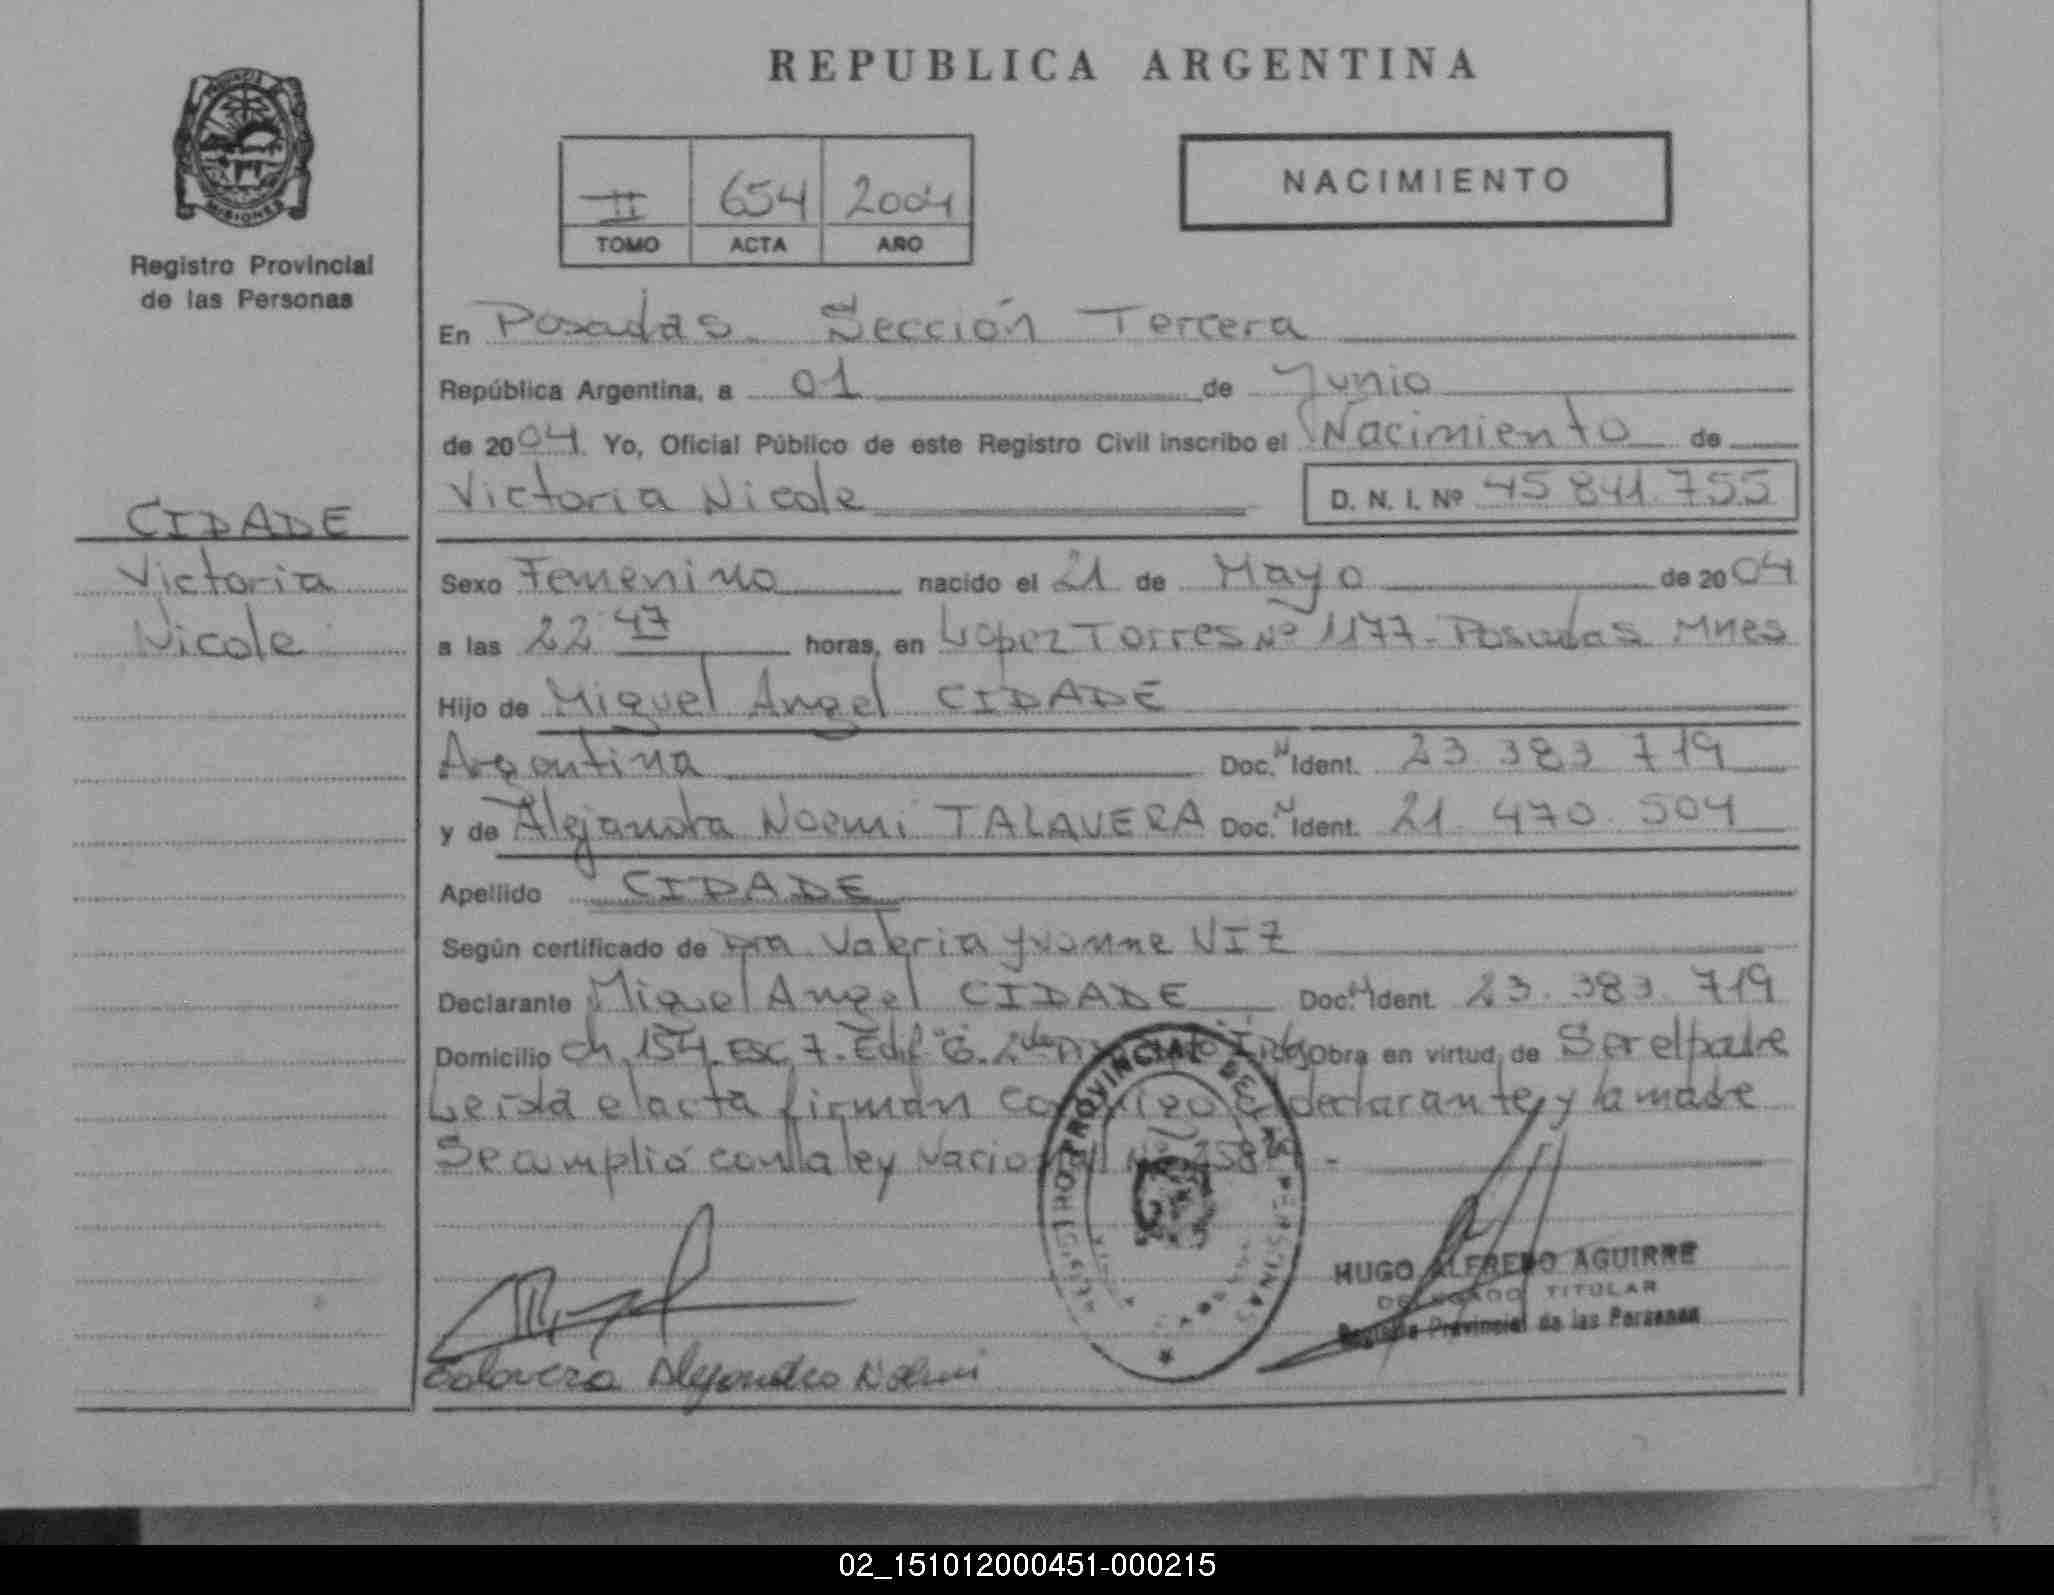 REPUBLICA ARGENTINA
PROVINCIA
MISIONES
Registro Provincial
de las Personas
II 654 2004
TOMO ACTA AÑO
NACIMIENTO
En Posadas. Sección Tercera
República Argentina, a 01 de Junio
de 2004. Yo, Oficial Público de este Registro Civil inscribo el Nacimiento de
Victoria Nicole D. N. I. Nº 45 841.755
CIDADE
Victoria
Nicole
Sexo Femenino nacido el 21 de Mayo de 2004
a las 22 47 horas, en López Torres Nº 1177. Posadas Mnes
Hijo de Miguel Angel CIDADE
Argentina Doc. N Ident. 23.383.719
y de Alejandra Noemi TALAVERA Doc. N Ident. 21.470.504
Apellido CIDADE
Según certificado de Dra. Valeria Yvonne VIZ
Declarante Miguel Angel CIDADE Doc. N Ident. 23.383.719
Domicilio ch. 154. Esc. 7. Edif 6. Obra en virtud de Ser el padre
Leida el acta firman conmigo el declarante y la madre
Se cumplió con la ley Nacional Nº
REGISTRO PROVINCIAL DE LAS PERSONAS
HUGO ALFREDO AGUIRRE
DELEGADO TITULAR
Registro Provincial de las Personas
Talavera Alejandra Noemi
02_151012000451-000215